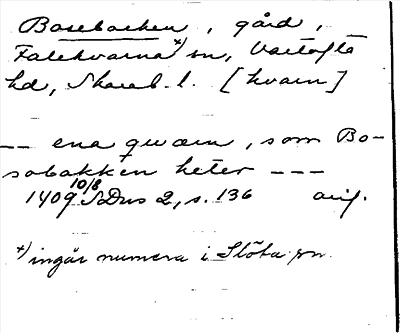 Basebacken, gård,
Falekvarna *) sn, Vartofta
hd, Skarab. l. [kvarn]
-- ena qwærn, som Bo-
sabakken heter ---
1409 10/8 SDns 2, s. 136 avs.
*) ingår numera i Slöta sn